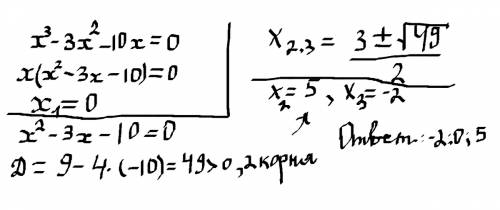 x³-3x²-10x=0
x(x²-3x-10)=0
x₁=0
x²-3x-10=0
D=9-4·(-10)=49>0, 2 корня
x₂.₃=(3±√49)/2
x₂=5, x₃=-2
Ответ: -2.0,5